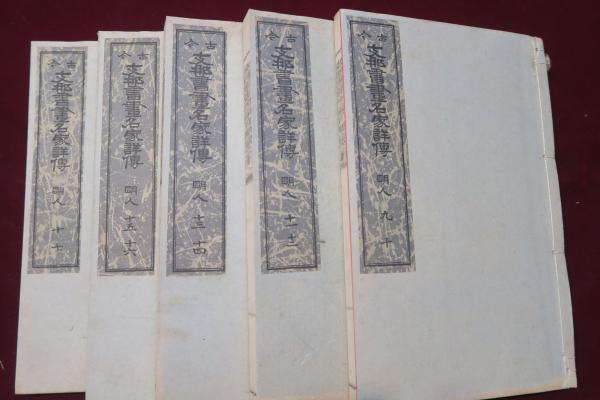 古今
支那書畫名家詳傳
明人 九 十
古今
支那書畫名家詳傳
明人 十一 十二
古今
支那書畫名家詳傳
明人 十三 十四
古今
支那書畫名家詳傳
明人 十五 十六
古今
支那書畫名家詳傳
明人 十七